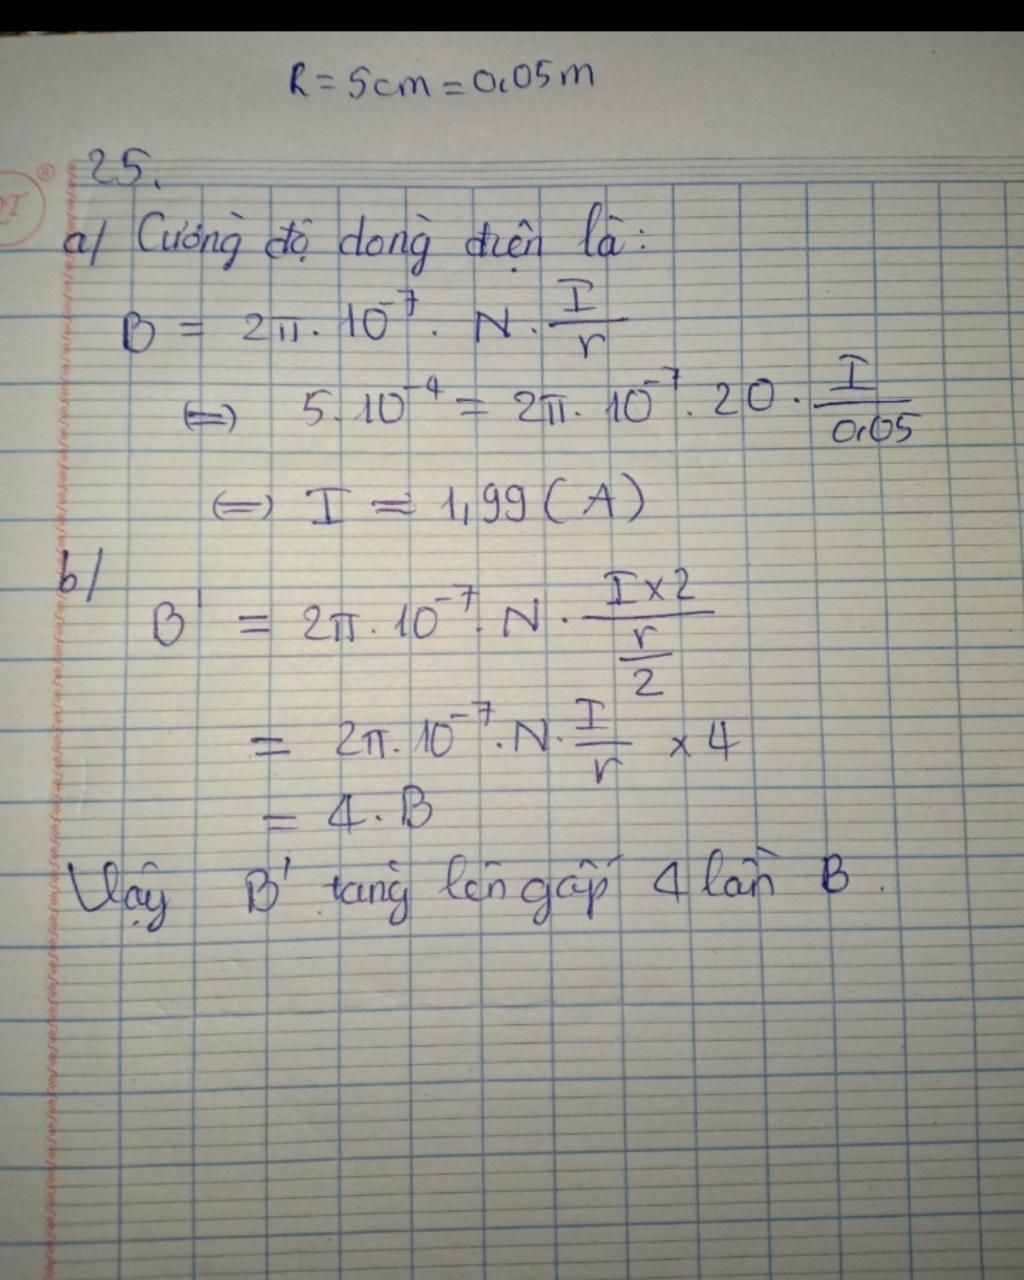 R = 5cm = 0,05m
25.
a/ Cường độ dòng điện là:
B = 2π . 10⁻⁷ . N . I/r
(=) 5.10⁻⁴ = 2π . 10⁻⁷ . 20 . I/0,05
(=) I ≈ 1,99 (A)
b/
B' = 2π . 10⁻⁷ . N . (I x 2)/(r/2)
= 2π . 10⁻⁷ . N . I/r x 4
= 4 . B
Vậy B' tăng lên gấp 4 lần B .